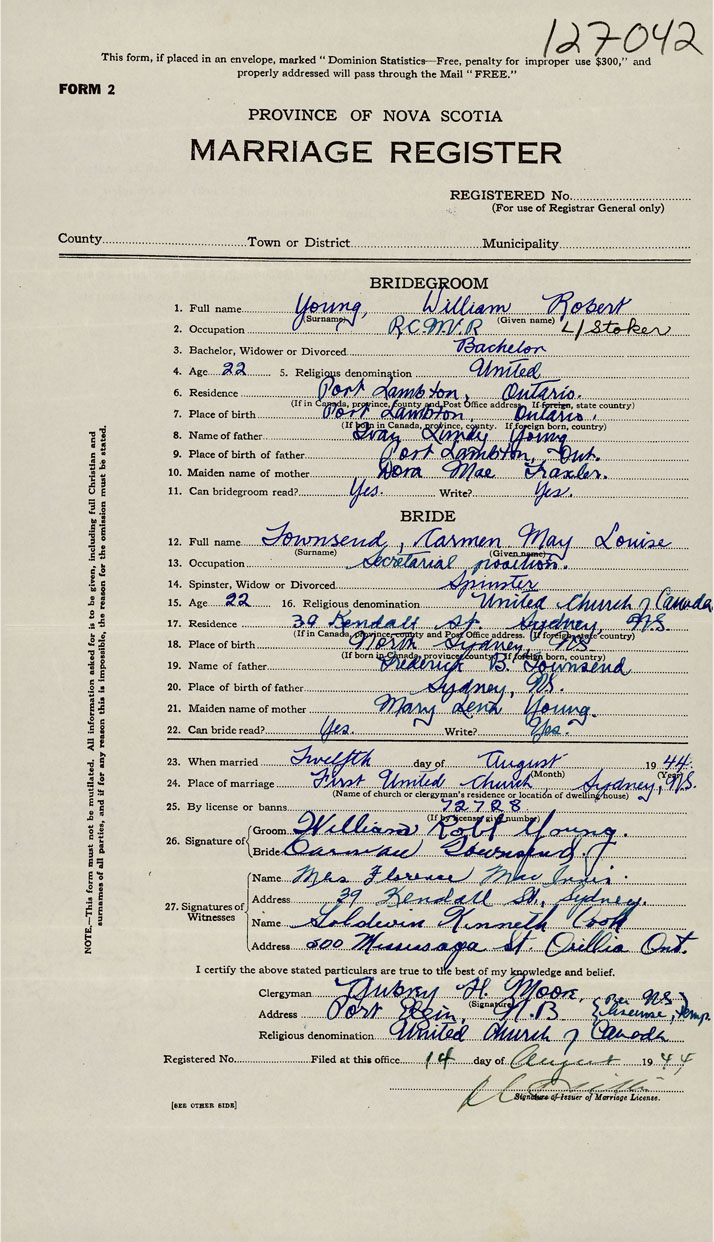 127042
This form, if placed in an envelope, marked " Dominion Statistics—Free, penalty for improper use $300," and
properly addressed will pass through the Mail " FREE."
FORM 2
PROVINCE OF NOVA SCOTIA
MARRIAGE REGISTER
REGISTERED No.
(For use of Registrar General only)
County Town or District Municipality
BRIDEGROOM
1. Full name Young, William Robert
(Surname) (Given name)
2. Occupation R.C.N.V.R L/Stoker
3. Bachelor, Widower or Divorced Bachelor
4. Age 22 5. Religious denomination United
6. Residence Port Lambton, Ontario.
(If in Canada, province, county and Post Office address. If foreign, state country)
7. Place of birth Port Lambton, Ontario.
(If born in Canada, province, county. If foreign born, country)
8. Name of father Ivay Lundy Young
9. Place of birth of father Port Lambton, Ont.
10. Maiden name of mother Dora Mae Traxler.
11. Can bridegroom read? Yes. Write? Yes.
BRIDE
12. Full name Townsend, Karmen May Louise
(Surname) (Given name)
13. Occupation Secretarial position.
14. Spinster, Widow or Divorced Spinster
15. Age 22 16. Religious denomination United Church of Canada
17. Residence 39 Kendall St. Sydney, NS
(If in Canada, province, county and Post Office address. If foreign, state country)
18. Place of birth North Sydney, NS
(If born in Canada, province, county. If foreign born, country)
19. Name of father Frederick B. Townsend
20. Place of birth of father Sydney, NS.
21. Maiden name of mother Mary Lena Young.
22. Can bride read? Yes. Write? Yes.
23. When married Twelfth day of August 1944.
(Month) (Year)
24. Place of marriage First United Church, Sydney, NS.
(Name of church or clergyman's residence or location of dwelling house)
25. By license or banns 72728
(If by license give number)
26. Signature of Groom William Robt Young.
Bride Townsend.
27. Signatures of Witnesses Name Mrs Florence MacInnis.
Address 39 Kendall St., Sydney.
Name Goldwin Kenneth Cook
Address 500 Mississaga St. Orillia Ont.
I certify the above stated particulars are true to the best of my knowledge and belief.
Clergyman Aubrey H. Moore,
(Signature)
Address Port Elgin, N.B (Per NS License, Temp.)
Religious denomination United Church of Canada
Registered No. Filed at this office 14 day of August 1944
Signature of Issuer of Marriage License.
[SEE OTHER SIDE]
NOTE.—This form must not be mutilated. All information asked for is to be given, including full Christian and
surnames of all parties, and if for any reason this is impossible, the reason for the omission must be stated.